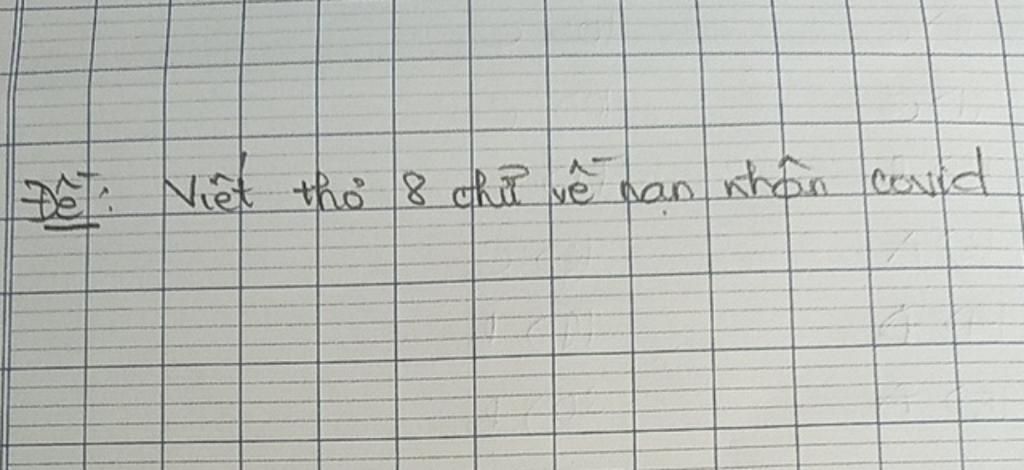 Đề: Viết thơ 8 chữ về nạn nhân covid